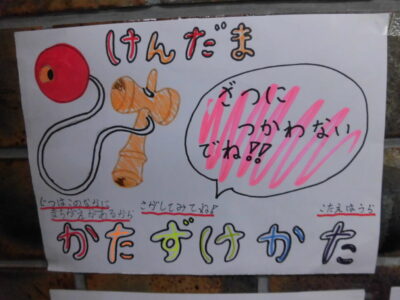 けんだま
ざつに
つかわない
でね!!
じつはこのなかに
まちがえがあるから
さがしてみてね!
こたえはうら
かたずけかた